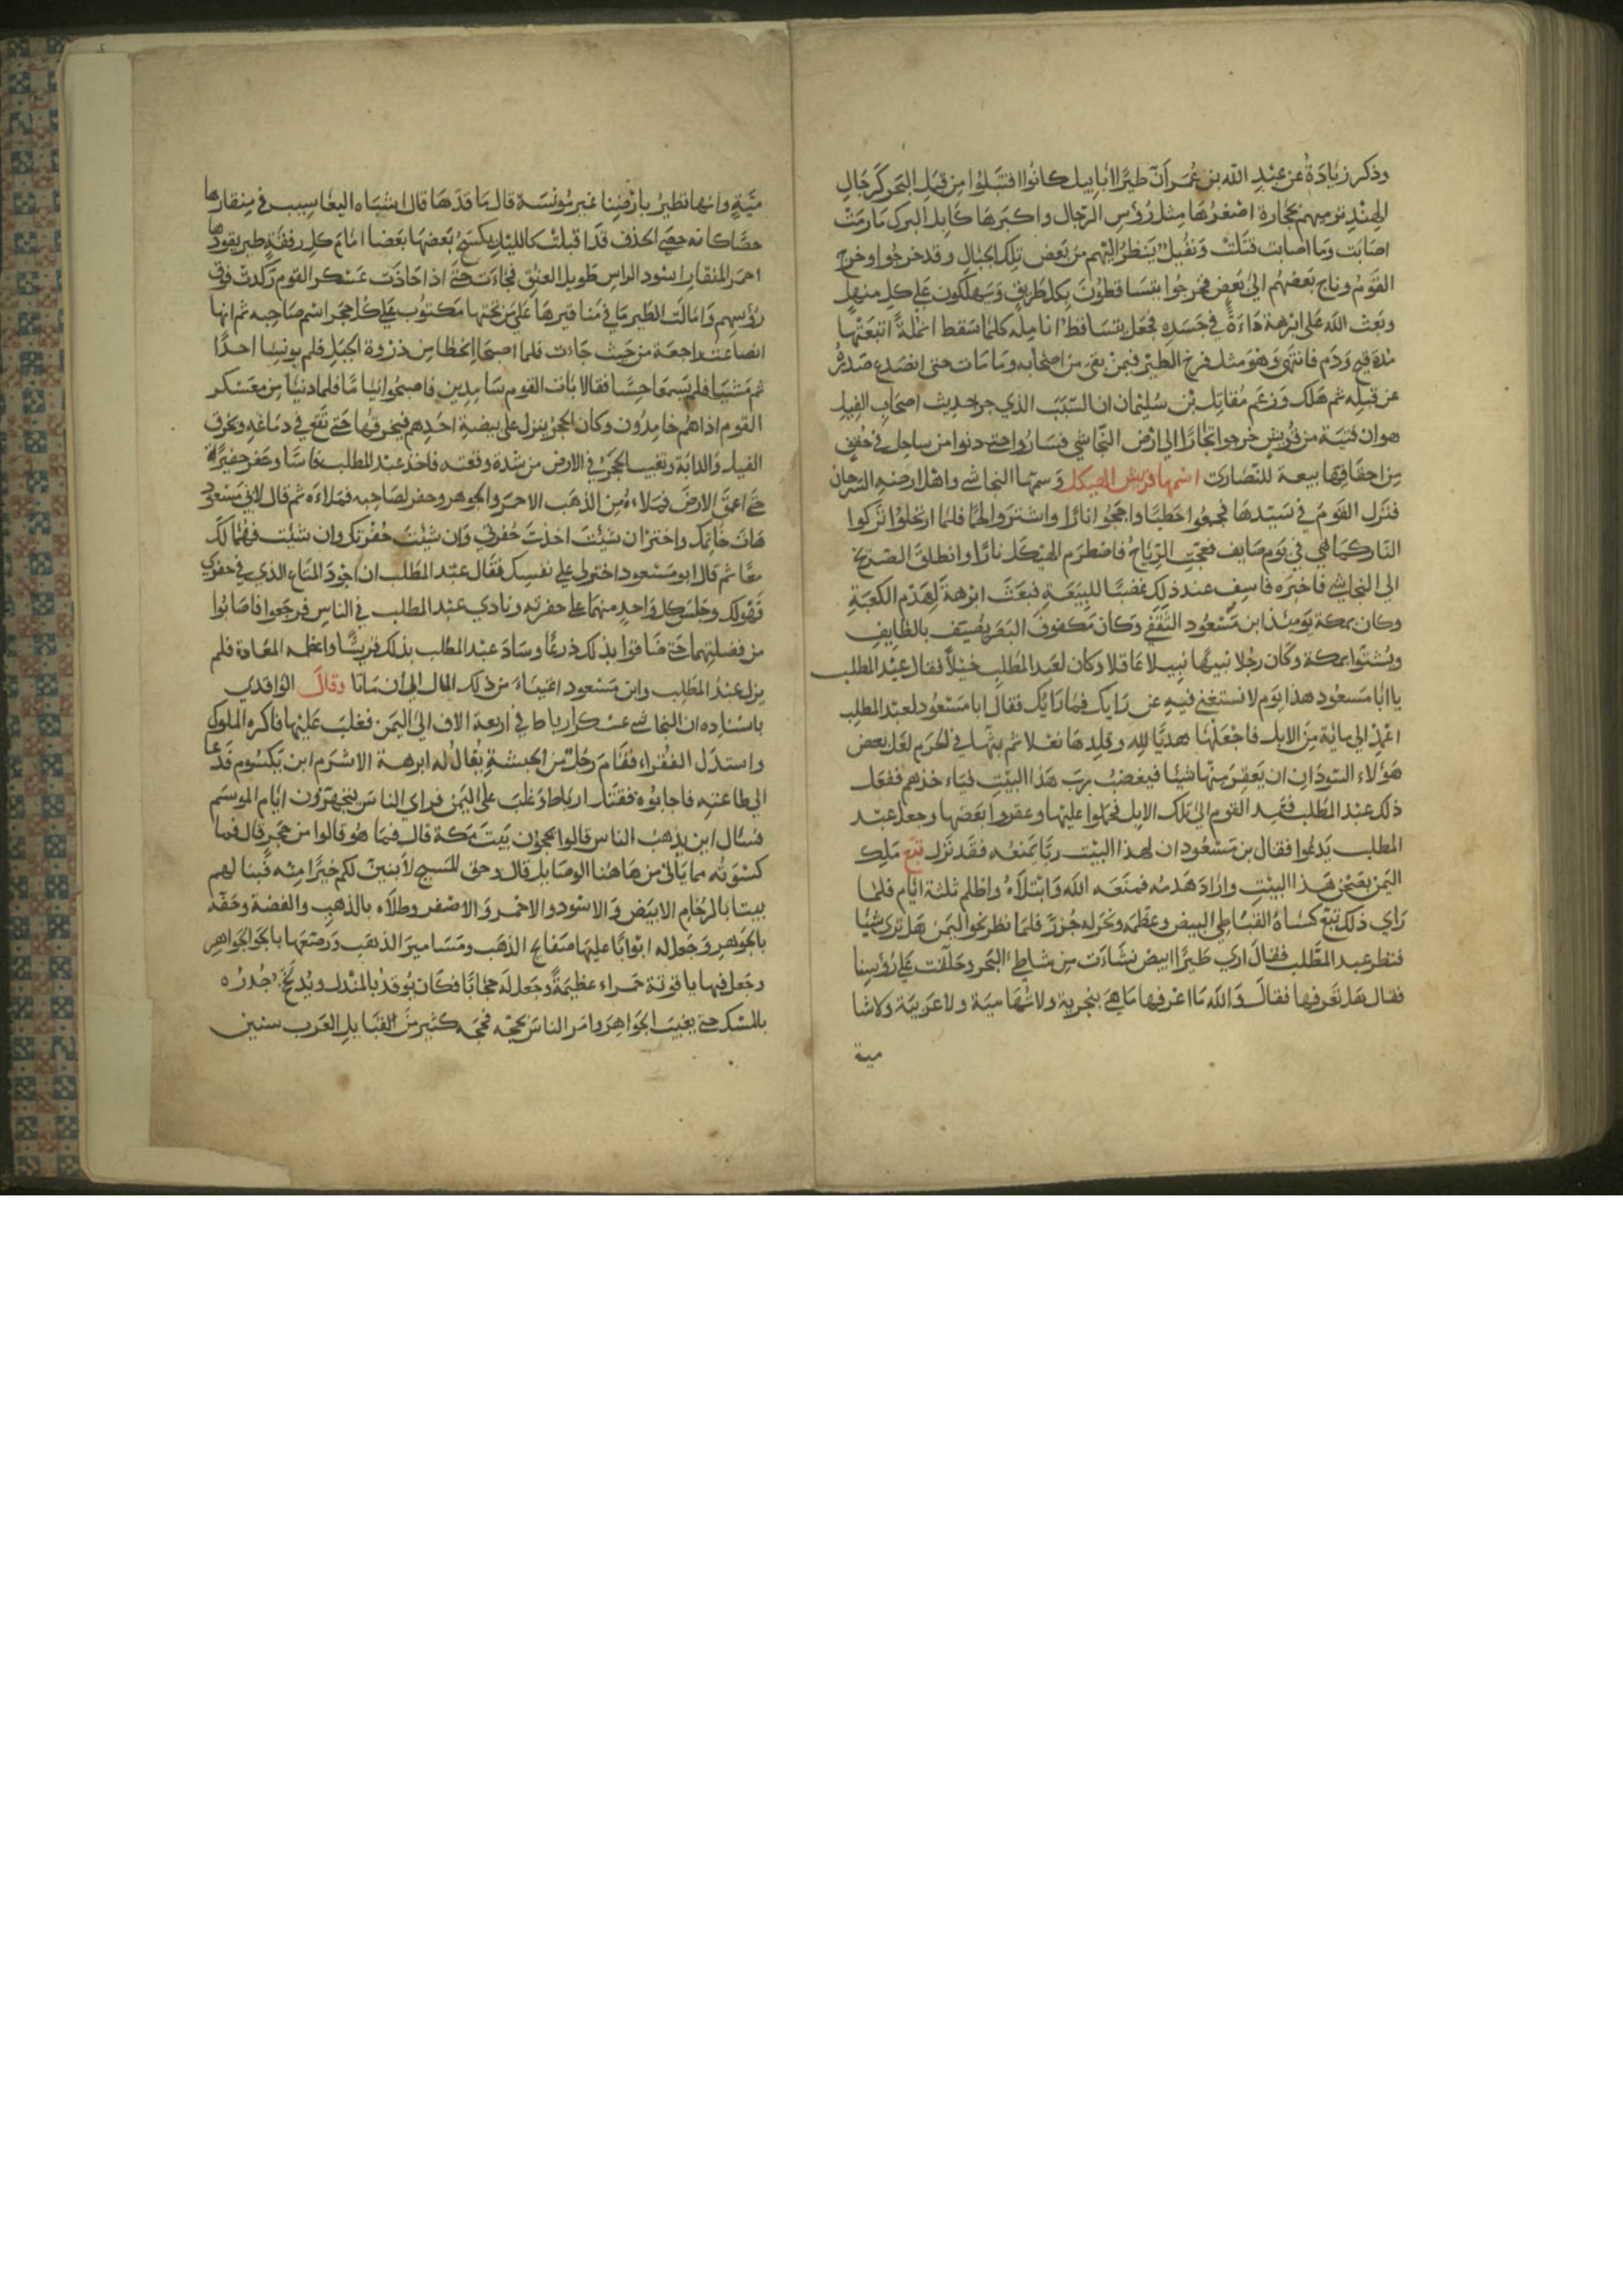 وذكر زيادة عن عبد الله بن عمر أن طيرا ابابيل كانوا اقتبلوا من قبل البحر كرجال
الهند ترميهم بحجارة اصغرها مثل رؤس الرجال واكبرها كابل البرك ما رمت
اصابت وما اصابت قتلت ونفيل ينظر اليهم من بعض تلك الجبال وقد خرجوا وخرج
القوم وناج بعضهم الى بعض فخرجوا يتساقطون بكل طريق ويهلكون على كل منهل
وبعث الله على ابرهة داءة في جسده فجعل يتساقط انامله كلما سقط انملة اتبعتها
مدة قيح ودم فانتهى وهو مثل فرخ الطير فيمن بقى من اصحابه وما مات حتى انصدع صدره
عن قبله ثم هلك وزعم مقاتل بن سليمان ان السبب الذي جر حديث اصحاب الفيل
هو ان فتية من قريش خرجوا تجارا الى ارض النجاشي فساروا حتى دنوا من ساحل في حقف
من احقافها بيعة للنصارى اسمها قريش الهيكل وسمتها النجاشي واهل ارضه السرحان
فنزل القوم في سيدها فجمعوا حطبا واججوا نارا واشتروا لحما فلما ارتحلوا تركوا
النار كما هي في يوم صايف فعجت الرياح فاضطرم الهيكل نارا وانطلق الصريخ
الى النجاشي فاخبره فاسف عند ذلك غضبا للبيعة فبعث ابرهة لهدم الكعبة
وكان بمكة يومئذ ابن مسعود الثقفي وكان مكفوف البصر يصيف بالطايف
ويشتوا بمكة وكان رجلا نبيها نبيلا عاقلا وكان لعبد المطلب خيلا فقال عبد المطلب
يا ابا مسعود هذا يوم لا نستغني فيه عن رايك فما رايك فقال ابا مسعود لعبد المطلب
اعمد الى ماية من الابل فاجعلها هديا لله وقلدها نعلا ثم بثها في الحرم لعل بعض
هؤلاء السودان ان يعقر منها شيئا فيغضب رب هذا البيت فياء خذهم ففعل
ذلك عبد المطلب فعمد القوم الى تلك الابل فحملوا عليها وعقروا بعضها وجعل عبد
المطلب يدعوا فقال بن مسعود ان لهذا البيت ربا يمنعه فقد نزل تبع ملك
اليمن بصحن هذا البيت واراد هدمه فمنعه الله وابتلاه واظلم ثلثة ايام فلما
راي ذلك تبع كساه القباطي البيض وعظمه ونحر له جزرا فلما نظر نحو اليمن هل ترى شيئا
فنظر عبد المطلب فقال ارى طيرا ابيض نشاءت من شاطئ البحر وحلقت على رؤسنا
فقال هل تعرفها فقال والله ما اعرفها ما هي بنجرية ولا تهامية ولا عربية ولا شا
مية
مية وانها تطير بارضنا غير مونسة قال ما قدها قال اشباه اليعاسيب في منقارها
حصا كانه حصى الحذف قد اقبلت كالليل يكسع بعضها بعضا امام كل رفقة طير يقودها
احمر المنقار اسود الراس طويل العنق فجاءت حتى اذا حاذت عسكر القوم ركدت فوق
رؤسهم وامالت الطير ما في مناقيرها على من تحتها مكتوب على كل حجر اسم صاحبه ثم انها
انصاعت راجعة من حيث جاءت فلما اصبحا انحطا من ذروة الجبل فلم يونسا احدا
ثم مشيا فلم يسمعا حسا فقالا بات القوم سامدين فاصبحوا نياما فلما دنيا من معسكر
القوم اذا هم خامدون وكان الحجر ينزل على بيضة احدهم فيخرقها حتى تقع في دماغه ويخرق
الفيل والدابة ويغيب الحجر في الارض من شدة وقعته فاخذ عبد المطلب فاسا وحفر حفيرة
حتى اعمق الارض فملاءه من الذهب الاحمر والجوهر وحفر لصاحبه فملاءه ثم قال لابي مسعود
هات خاتمك واختر ان شئت اخذت حفرتي وان شئت حفرتك وان شئت فهما لك
معا ثم قال ابو مسعود اختر لي على نفسك فقال عبد المطلب ان اجود المتاع الذي في حفرتي
فهو لك وجلس كل واحد منهما على حفرته ونادى عبد المطلب في الناس فرجعوا فاصابوا
من فضلتهما حتى ضاقوا بذلك ذرعا وساد عبد المطلب بذلك قريشا واعطته المقادة فلم
يزل عبد المطلب وابن مسعود اغنياء من ذلك المال الى ان ماتا وقال الواقدي
باسناده ان النجاشي عسكر ارباط في اربعة الاف الى اليمن فغلب عليها فاكره الملوك
واستذل الفقراء فقام رجل من الحبشة يقال له ابرهة الاشرم ابن يكسوم فدعا
الى طاعته فاجابوه فقتل ارباط وغلب على اليمن فراى الناس يتجهزون ايام الموسم
فسال اين يذهب الناس قالوا يحجون بيت بمكة قال فما هو قالوا من حجر قال فما
كسوته مما ياتى من هاهنا الوصايل قال وحق المسيح لابنين لكم خيرا منه فبنا لهم
بيتا بالرخام الابيض والاسود والاحمر والاصفر وطلاه بالذهب والفضة وحفه
بالجوهر وجعل له ابوابا عليها صفايح الذهب ومسامير الذهب ورصعها بالجواهر
وجعل فيها ياقوتة حمراء عظيمة وجعل له حجابا فكان يوقد بالمندل ويلطخ جدره
بالمسك حتى يغيب الجواهر وامر الناس بحجه فحجه كثير من القبايل العرب سنين